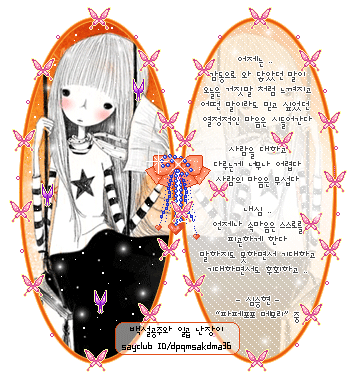 어제는 ..
감동으로 와 닿았던 말이
오늘은 거짓말 처럼 느껴지고
어떤 말이라도 믿고 싶었던
열정적인 마음은 시들어간다
사람을 대하고
다루는게 너무나 어렵다
사람의 마음은 무섭다
내심 ..
언제나 속마음은 스스로를
피곤하게 한다
말하지도 못하면서 기대하고
기대하면서도 후회하고 ..
- 심승현 -
"파페포포 메모리" 중
백설공주와 일곱 난장이
sayclub ID/dpqmsakdma36